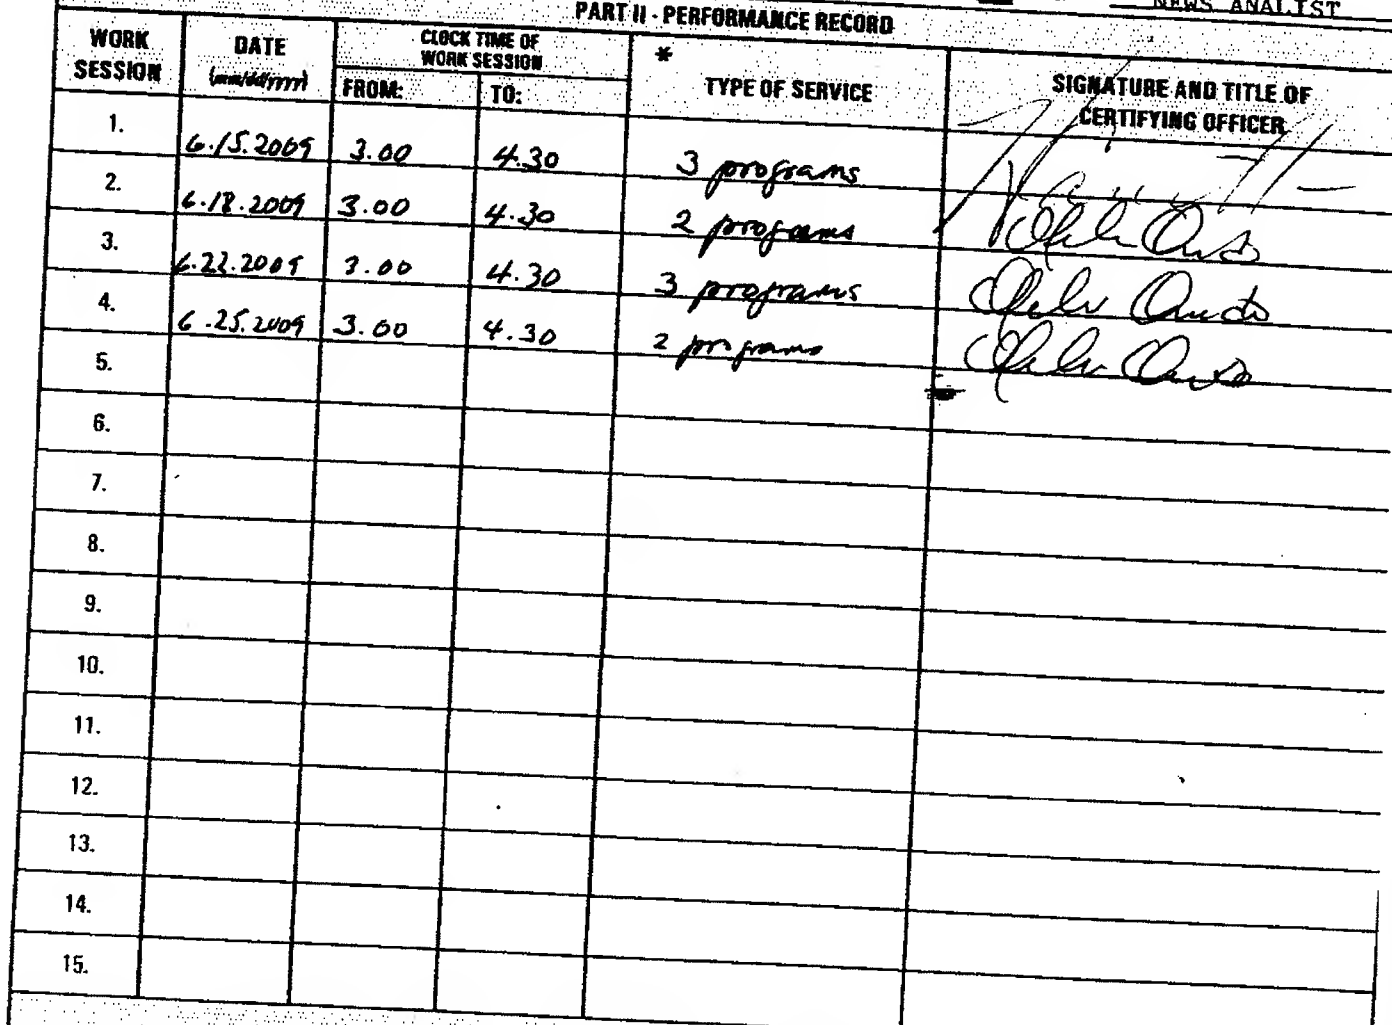 NEWS ANALIST
PART II - PERFORMANCE RECORD
WORK SESSION
DATE (mm/dd/yyyy)
CLOCK TIME OF WORK SESSION
FROM:
TO:
* TYPE OF SERVICE
SIGNATURE AND TITLE OF CERTIFYING OFFICER
1. 6.15.2009 3.00 4.30 3 programs
2. 6.18.2009 3.00 4.30 2 programs
3. 6.22.2009 3.00 4.30 3 programs
4. 6.25.2009 3.00 4.30 2 programs
5.
6.
7.
8.
9.
10.
11.
12.
13.
14.
15.